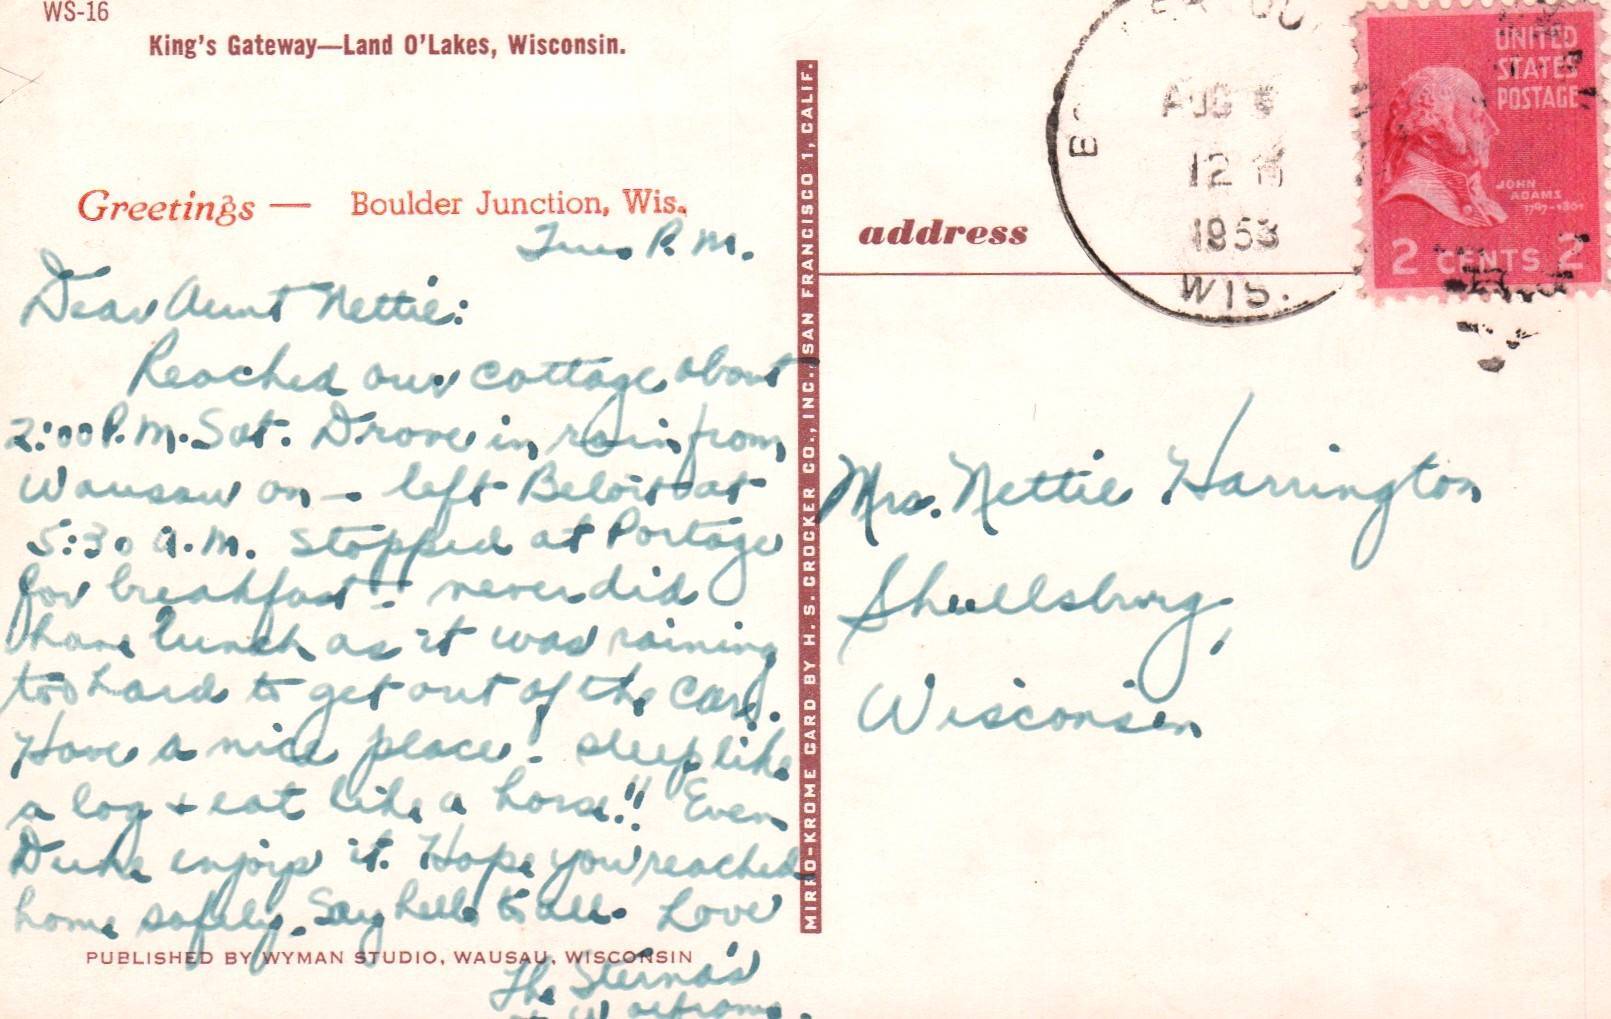 WS-16
King's Gateway—Land O'Lakes, Wisconsin.
Greetings — Boulder Junction, Wis.
Tues P.M.
Dear Aunt Nettie:
Reached our cottage about
2:00 P.M. Sat. Drove in rain from
Wausau on — left Beloit at
5:30 A.M. Stopped at Portage
for breakfast - never did
have lunch as it was raining
too hard to get out of the car.
Have a nice place! Sleep like
a log + eat like a horse!! Even
Duke enjoys it. Hope you reached
home safely. Say hello to all. Love
PUBLISHED BY WYMAN STUDIO, WAUSAU, WISCONSIN
The
MIRRO-KROME CARD BY H. S. CROCKER CO., INC., SAN FRANCISCO 1, CALIF.
address
AUG
12
1953
WIS.
UNITED
STATES
POSTAGE
JOHN
ADAMS
1797-1801
2 CENTS 2
Mrs. Nettie Harrington
Shullsburg,
Wisconsin